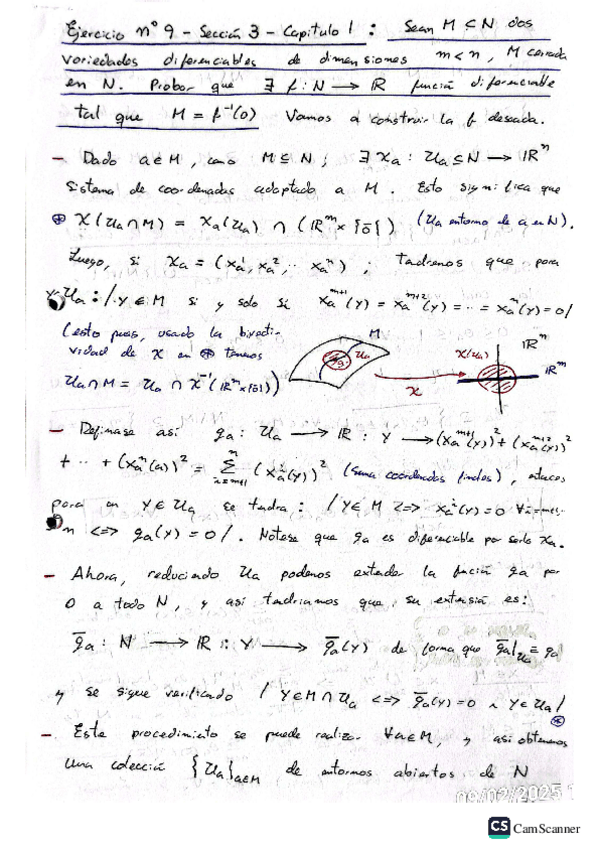 Ejercicio nº 9 - Sección 3 - Capitulo 1 : Sean M ⊆ N dos
variedades diferenciables de dimensiones m < n, M cerrada
en N. Probar que ∃ f : N → ℝ función diferenciable
tal que M = f⁻¹(0) Vamos a construir la f deseada.
- Dado a ∈ M, como M ⊆ N ; ∃ xa : Ua ⊆ N → ℝⁿ
Sistema de coordenadas adaptado a M. Esto significa que
⊛ x(Ua ∩ M) = xa(Ua) ∩ (ℝᵐ × {0̄}) (Ua entorno de a en N).
Luego, si xa = (xa¹, xa², ·· xaⁿ) ; tendremos que para
y ∈ Ua : / y ∈ M si y solo si xaᵐ⁺¹(y) = xaᵐ⁺²(y) = ·· = xaⁿ(y) = 0 /
(esto pues, usando la biyecti-
vidad de x en ⊛ tenemos
Ua ∩ M = Ua ∩ x⁻¹(ℝᵐ × {0̄}))
M
Ua
a
x
x(Ua)
ℝⁿ
ℝᵐ
- Definase así ga : Ua → ℝ : y → (xaᵐ⁺¹(y))² + (xaᵐ⁺²(y))²
+ ·· + (xaⁿ(a))² = Σⁿᵢ₌ₘ₊₁ (xaⁱ(y))² (suma coordenadas finales), entonces
para un y ∈ Ua se tendra : / y ∈ M <=> xaⁱ(y) = 0 ∀i=m+1..
n <=> ga(y) = 0 /. Nótese que ga es diferenciable por serlo xa.
- Ahora, reduciendo Ua podemos extender la función ga por
0 a todo N, y así tendriamos que su extensión es:
ḡa : N → ℝ : y → ḡa(y) de forma que ḡa|Ua = ga
y se sigue verificando / y ∈ M ∩ Ua <=> ḡa(y) = 0 ∧ y ∈ Ua /
⊛
- Este procedimiento se puede realizar ∀a ∈ M, y así obtenemos
una colección {Ua}a∈M de entornos abiertos de N
09/02/2025
CS CamScanner